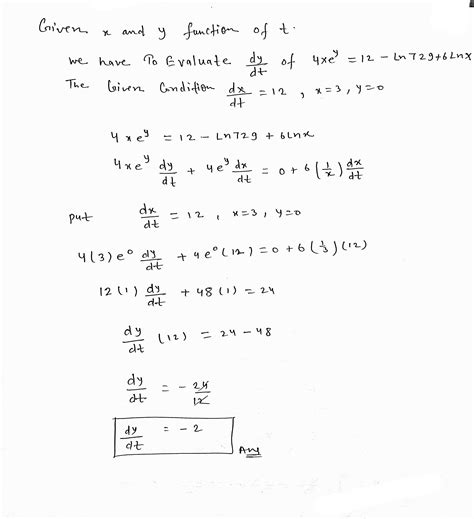 Given x and y function of t.
we have To Evaluate dy/dt of 4xe^y = 12 - ln729+6lnx
The Given Condition dx/dt = 12 , x=3, y=0
4xe^y = 12 - ln729 + 6lnx
4xe^y dy/dt + 4e^y dx/dt = 0+6(1/x) dx/dt
put dx/dt = 12 , x=3, y=0
4(3)e^0 dy/dt + 4e^0(12) = 0+6(1/3)(12)
12(1) dy/dt + 48(1) = 24
dy/dt (12) = 24-48
dy/dt = -24/12
dy/dt = -2
Ans